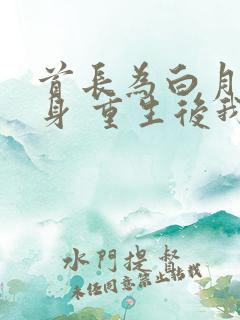 首長為白月
身 重生後我
水門提督
未经同意禁止转载